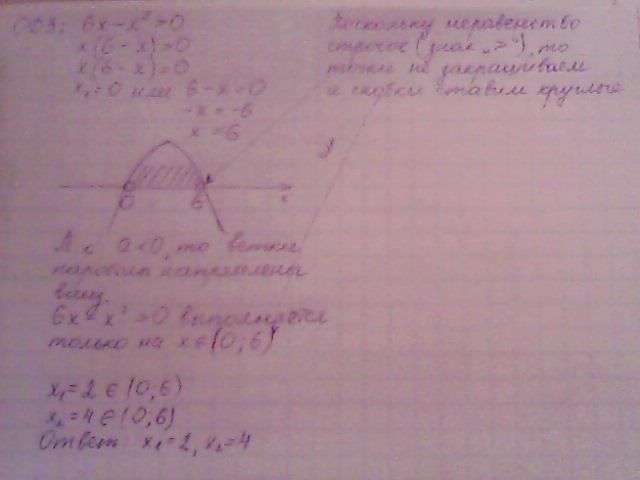 ОДЗ: 6x-x²=0
x(6-x)=0
x(6-x)=0
x₁=0 или 6-x=0
-x=-6
x=6
Поскольку неравенство
строгое (знак „>“), то
точки не закрашиваем
и скобки ставим круглые
0 6 x
Т.к. a<0, то ветки
параболы направлены
вниз.
6x-x²>0 выполняется
только на x∈(0;6)
x₁=2∈(0;6)
x₂=4∈(0;6)
Ответ x₁=2, x₂=4